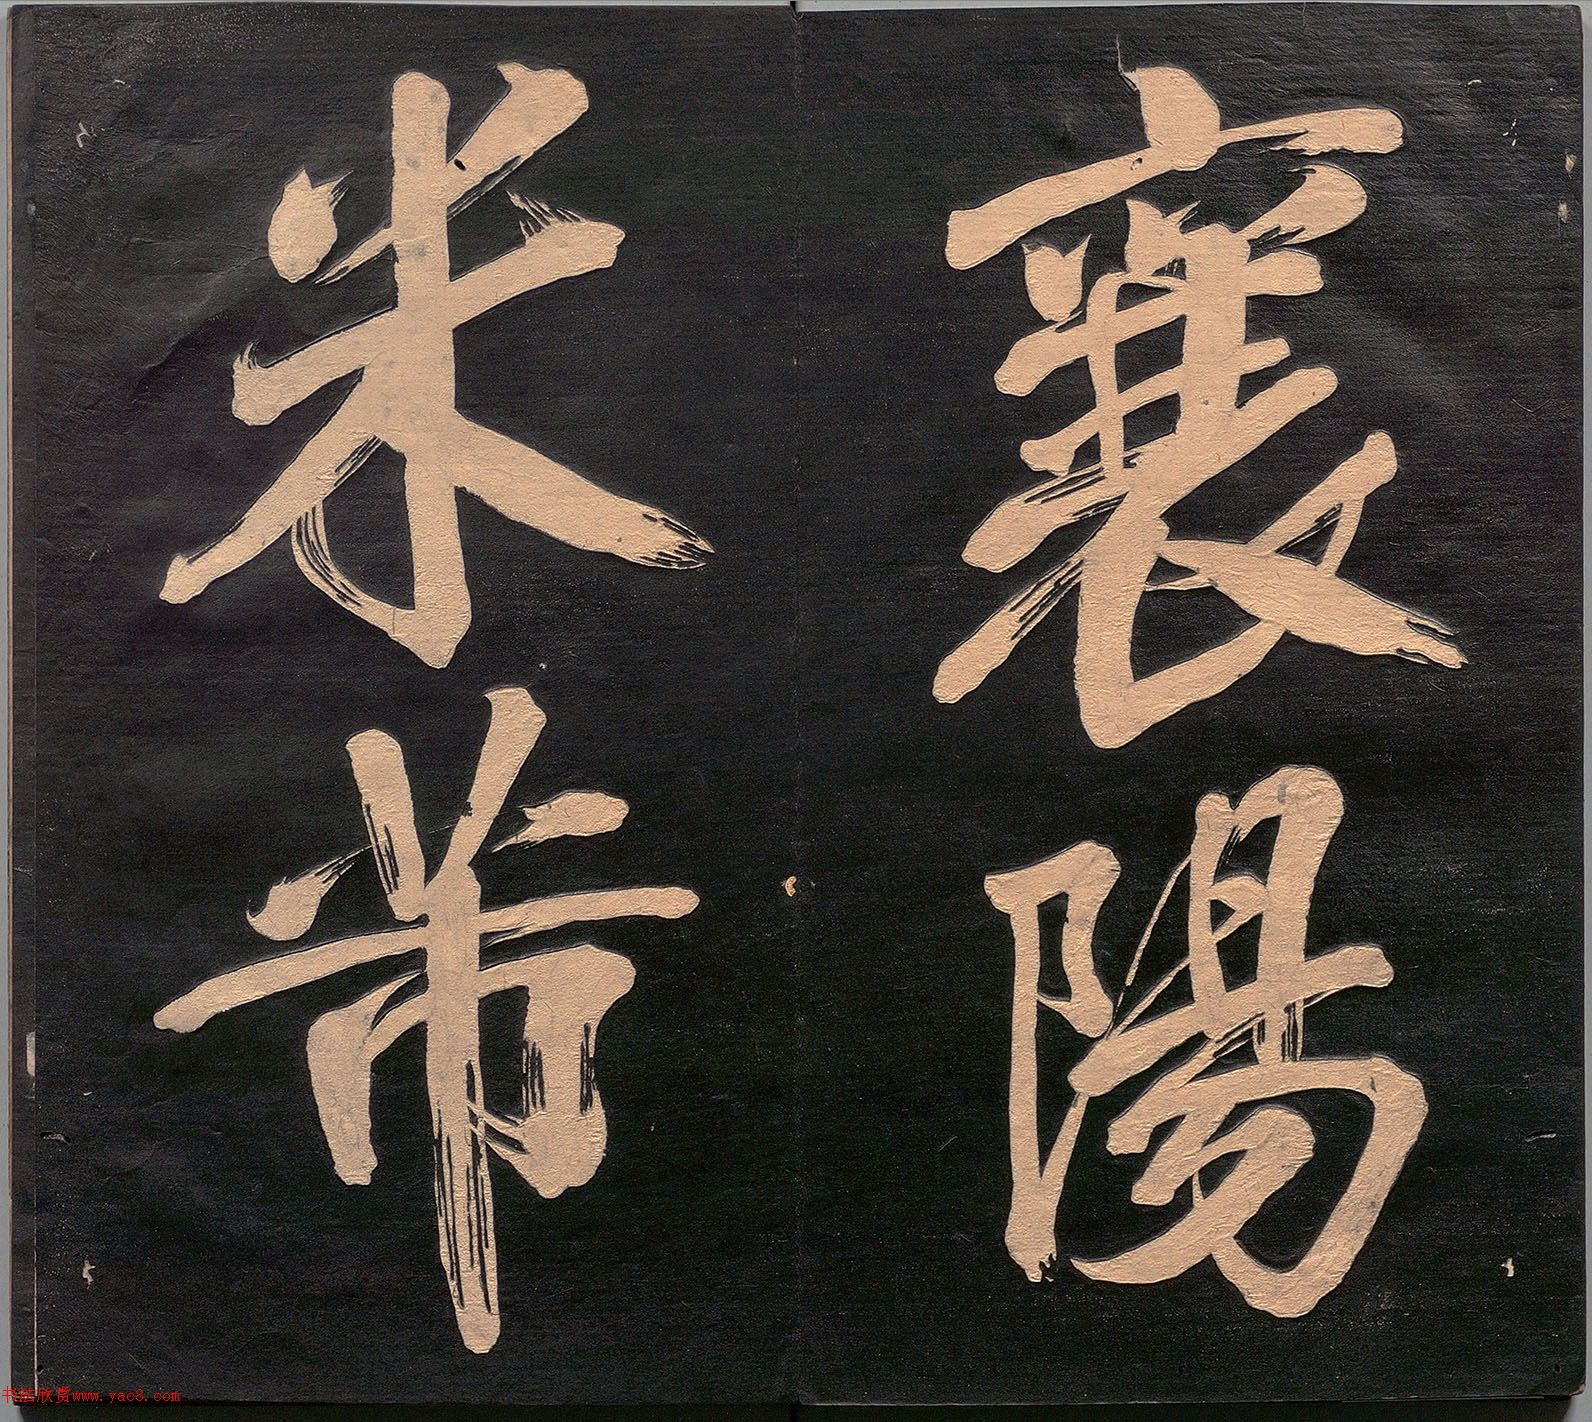 襄陽
米芾
书法欣赏www.yac8.com